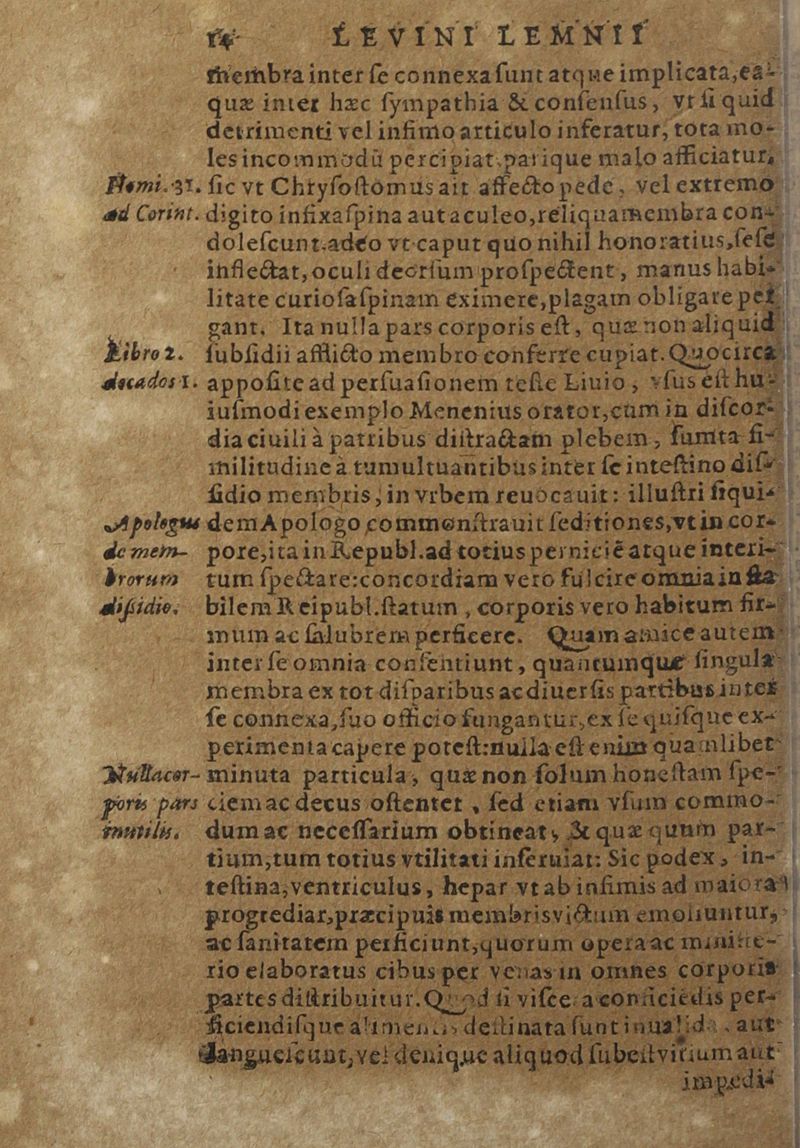 14 LEVINI LEMNII
membra inter ſe connexa ſunt atque implicata, ea-
quæ inter hæc ſympathia & conſenſus, vt ſi quid
detrimenti vel infimo articulo inferatur, tota mo-
les incommodū percipiat, parique malo afficiatur,
Homi. 31. ſic vt Chryſoſtomus ait affecto pede, vel extremo
ad Corint. digito infixa ſpina aut aculeo, reliqua membra con-
doleſcunt: adeo vt caput quo nihil honoratius, ſeſe
inflectat, oculi deorſum proſpectent, manus habi-
litate curioſa ſpinam eximere, plagam obligare per
gant. Ita nulla pars corporis eſt, quæ non aliquid
Libro 2. ſubſidii afflicto membro conferre cupiat. Quocirca
decados 1. appoſite ad perſuaſionem teſte Liuio, vſus eſt hu-
iuſmodi exemplo Menenius orator, cùm in diſcor-
dia ciuili à patribus diſtractam plebem, ſumta ſi-
militudine à tumultuantibus inter ſe inteſtino diſ-
ſidio membris, in vrbem reuocauit: illuſtri ſiqui-
Apologus dem Apologo commonſtrauit ſeditiones, vt in cor-
de mem- pore, ita in Republ. ad totius pernicie atque interi-
brorum tum ſpectare: concordiam vero fulcire omnia in ſta
diſsidio. bilem Reipubl. ſtatum, corporis vero habitum fir-
mum ac ſalubrem perficere. Quam amice autem
inter ſe omnia conſentiunt, quantumque ſingula
membra ex tot diſparibus ac diuerſis partibus inter
ſe connexa, ſuo officio fungantur, ex ſe quiſque ex-
perimenta capere poteſt: nulla eſt enim quamlibet
Nulla cor- minuta particula, quæ non ſolum honeſtam ſpe-
poris pars ciem ac decus oſtentet, ſed etiam vſum commo-
inutilis. dum ac neceſſarium obtineat, & quæ quum par-
tium, tum totius vtilitati inſeruiat: Sic podex, in-
teſtina, ventriculus, hepar vt ab infimis ad maiora
progrediar, præcipuis membris victum emoliuntur,
ac ſanitatem perficiunt, quorum opera ac miniſte-
rio elaboratus cibus per venas in omnes corporis
partes diſtribuitur. Quod ſi viſcera conficiēdis per-
ficiendiſque alimentis deſtinata ſunt inualida, aut
langueſcunt, vel denique aliquod ſubeſt vitium aut
impedi-